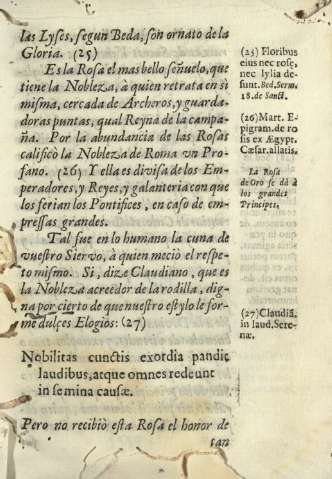 las Lyses, segun Beda, son ornato de la
Gloria. (25)
Es la Rosa el mas bello señuelo, que
tiene la Nobleza, à quien retrata en si
misma, cercada de Archeros, y guarda-
doras puntas, qual Reyna de la campa-
ña. Por la abundancia de las Rosas
calificò la Nobleza de Roma vn Pro-
fano. (26) Y ella es divisa de los Em-
peradores, y Reyes, y galanteria con que
los ferian los Pontifices, en caso de em-
pressas grandes.
Tal fue en lo humano la cuna de
vuestro Siervo, à quien meciò el respe-
to mismo. Si, dize Claudiano, que es
la Nobleza acreedor de la rodilla, dig-
na por cierto de que nuestro estylo le for-
me dulçes Elogios: (27)
Nobilitas cunctis exordia pandit
laudibus, atque omnes redeunt
in semina causæ.
Pero no recibiò esta Rosa el honor de
tan
(25) Floribus
eius nec rosę,
nec lylia de-
sunt. Bed. Serm.
18. de Sanct.
(26) Mart. E-
pigram. de ro
sis ex Ægypt.
Cæsar. allatis.
La Rosa
de Oro se dà à
los grandes
Principes.
(27) Claudiã.
in laud. Sere-
næ.